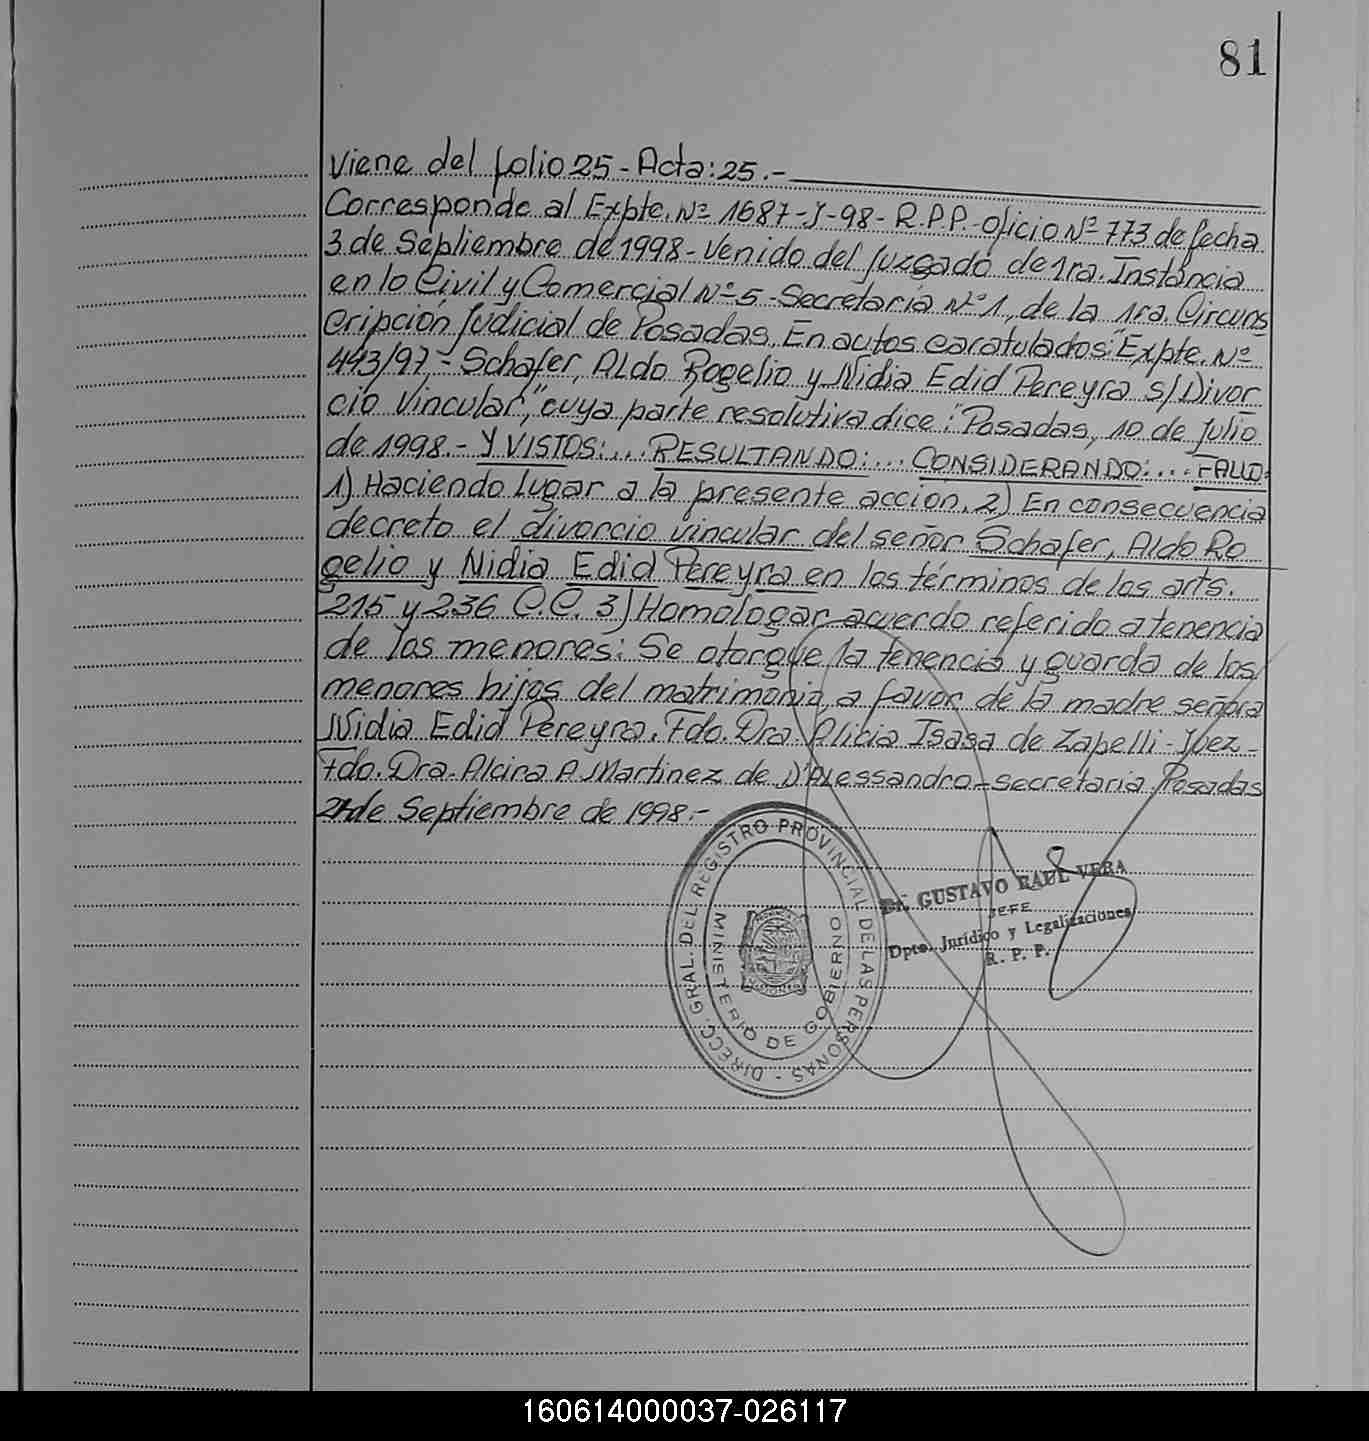 81
Viene del folio 25 - Acta: 25.-
Corresponde al Expte. Nº 1687-J-98- R.P.P.-Oficio Nº 773 de fecha
3 de Septiembre de 1998- Venido del Juzgado de 1ra. Instancia
en lo Civil y Comercial Nº 5 - Secretaría Nº 1, de la 1ra. Circuns
cripción Judicial de Posadas. En autos caratulados: "Expte. Nº
443/97,- Schafer, Aldo Rogelio y Nidia Edid Pereyra s/Divor
cio Vincular," cuya parte resolutiva dice: "Posadas, 10 de Julio
de 1998.- Y VISTOS:... RESULTANDO:... CONSIDERANDO:... FALLO:
1) Haciendo lugar a la presente acción. 2) En consecuencia
decreto el divorcio vincular del señor Schafer, Aldo Ro
gelio y Nidia Edid Pereyra en los términos de los arts.
215 y 236 C.C. 3) Homologar acuerdo referido a tenencia
de los menores: Se otorgue la tenencia y guarda de los
menores hijos del matrimonio, a favor de la madre señora
Nidia Edid Pereyra. Fdo. Dra. Alicia Isasa de Zapelli - Juez-
Fdo. Dra. Alcira A. Martinez de D'Alessandro - Secretaria Posadas
de Septiembre de 1998.-
DIRECC. GRAL. DEL REGISTRO PROVINCIAL DE LAS PERSONAS -
MINISTERIO DE GOBIERNO
Dr. GUSTAVO RAUL VERA
JEFE
Dpto. Jurídico y Legalizaciones
R. P. P.
160614000037-026117